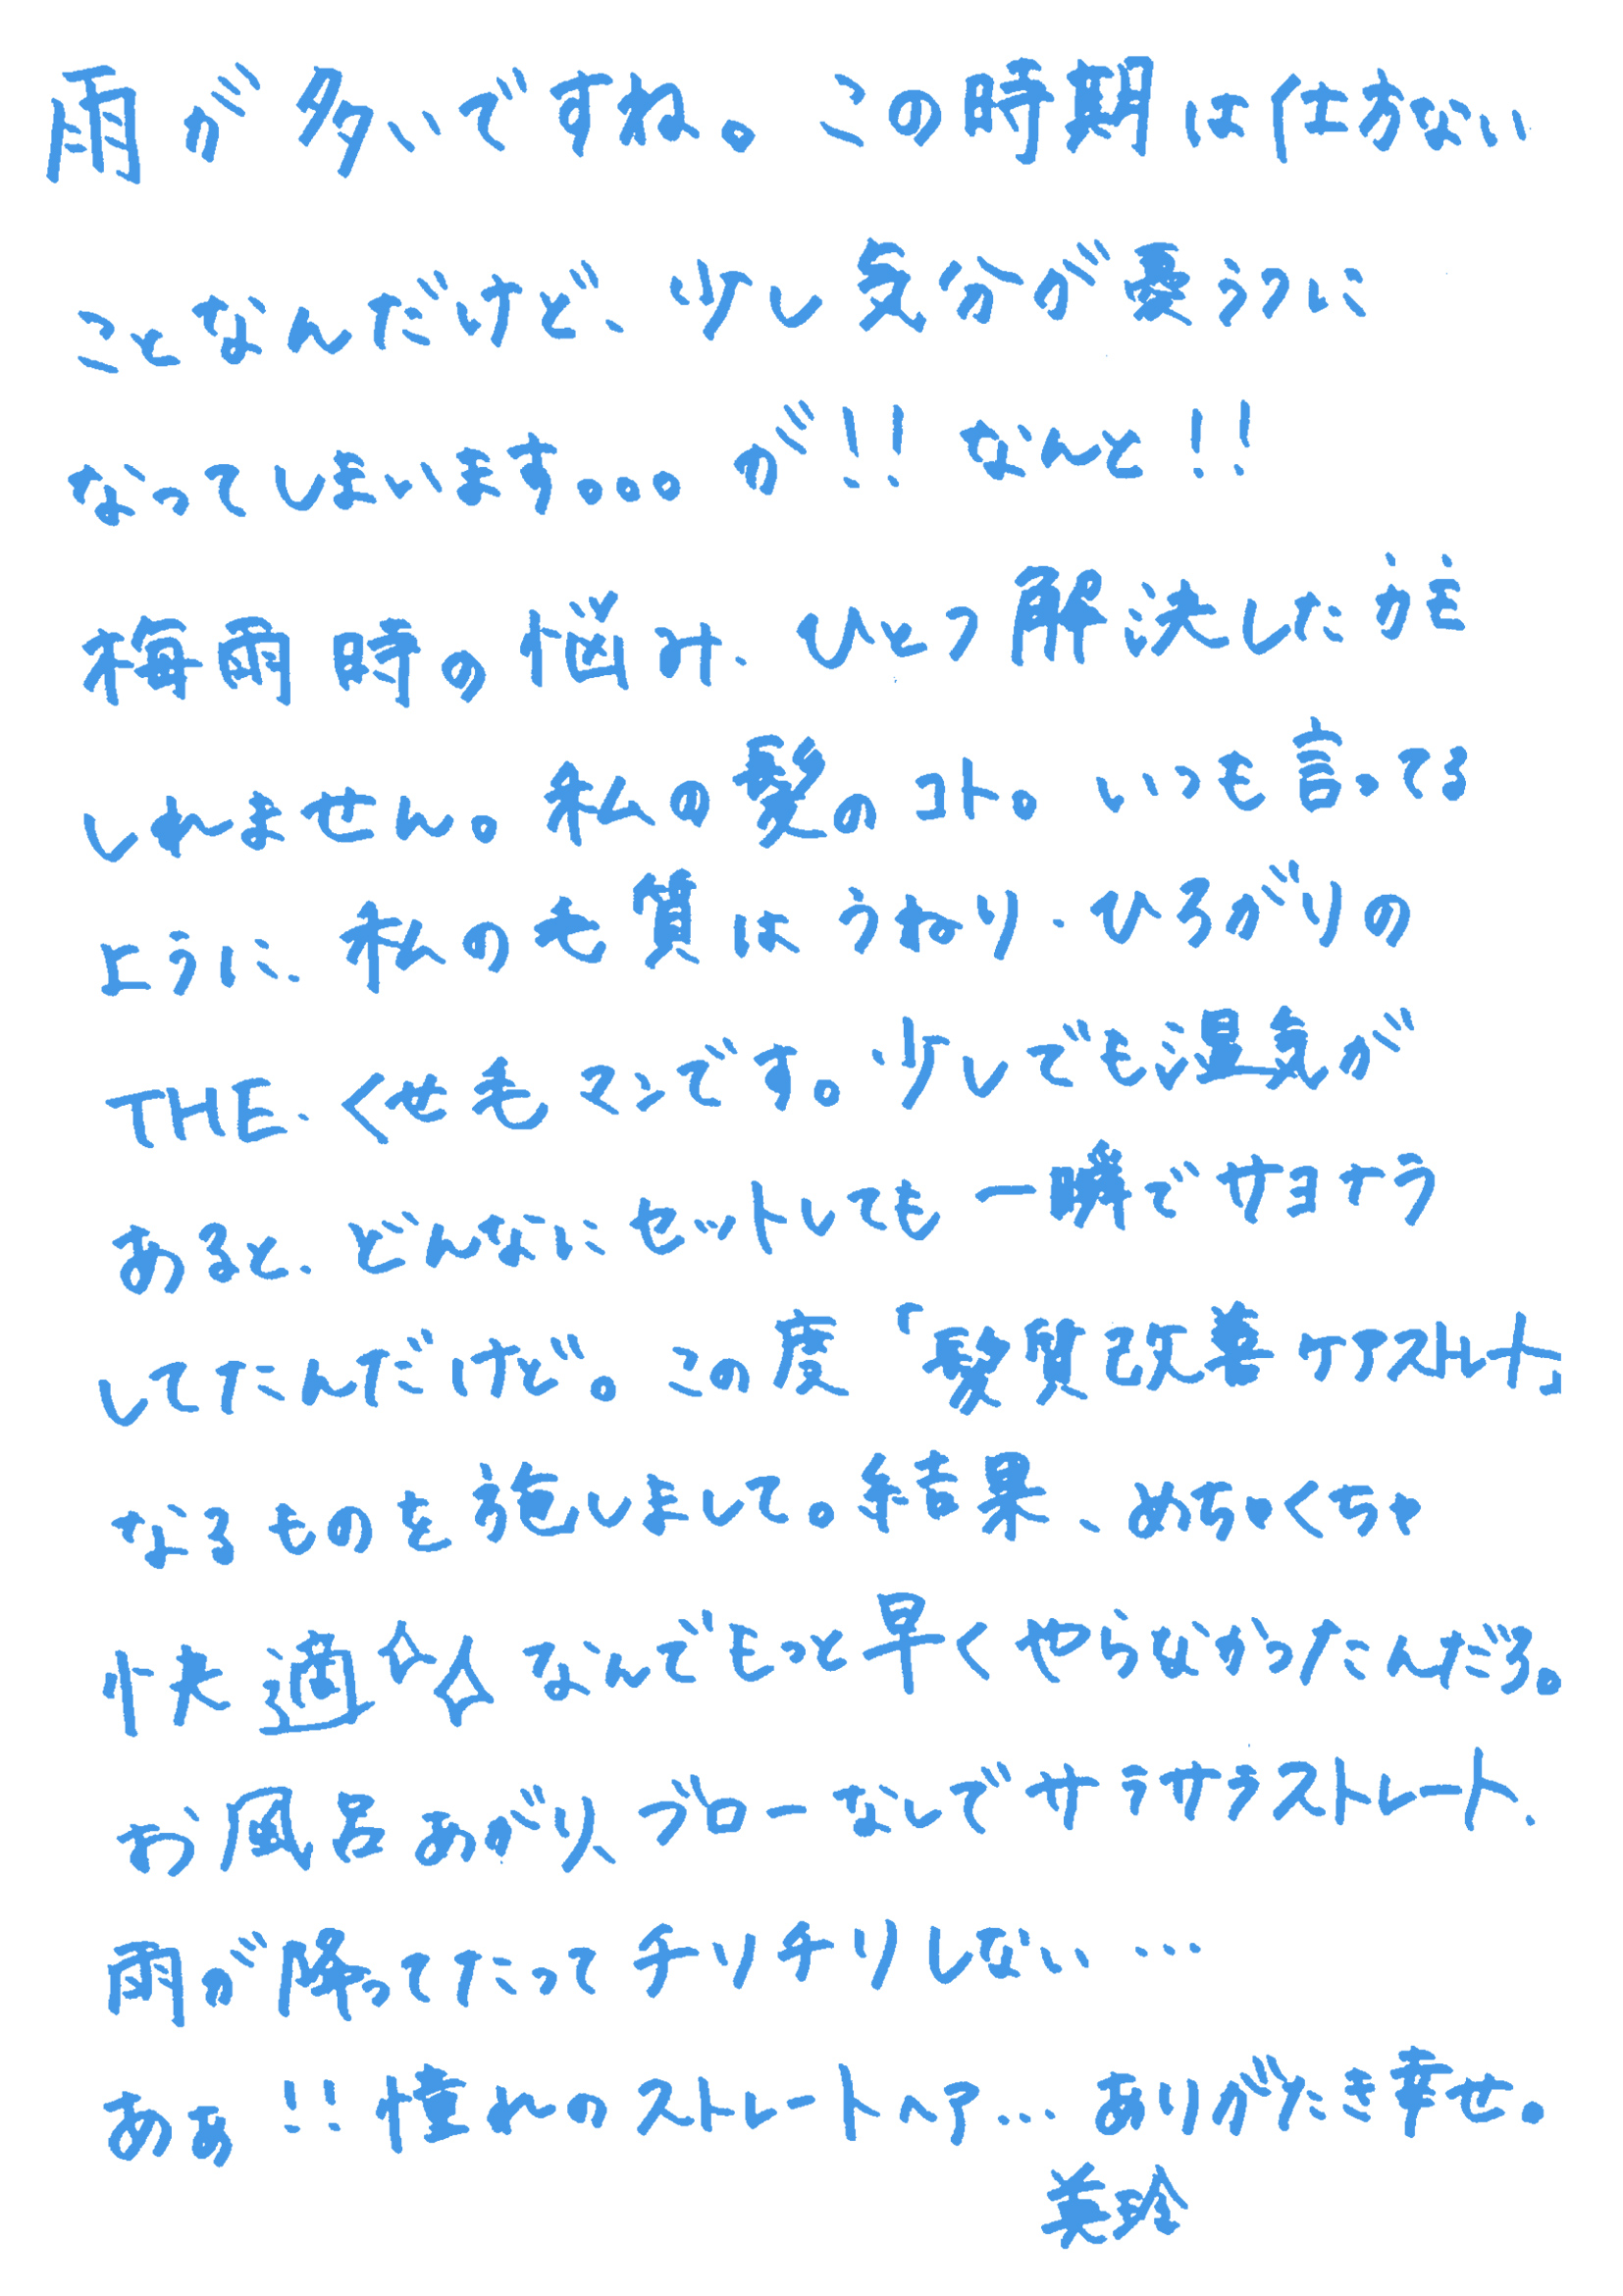 雨が多いですね。この時期は仕方ない
ことなんだけど、少し気分が憂うつに
なってしまいます。。。が!! なんと!!
梅雨時の悩み、ひとつ解決したかも
しれません。私の髪のコト。いつも言ってる
ように、私の毛質はうねり・ひろがりの
THE・くせ毛マンです。少しでも湿気が
あると、どんなにセットしても一瞬でサヨナラ
してたんだけど。この度「髪質改善ケアストレート」
なるものを施しまして。結果、めちゃくちゃ
快適✧✧なんでもっと早くやらなかったんだろ。
お風呂あがり、ブローなしでサラサラストレート、
雨が降ってたってチリチリしない…
あぁ!!憧れのストレートヘア…ありがたき幸せ。
美玲